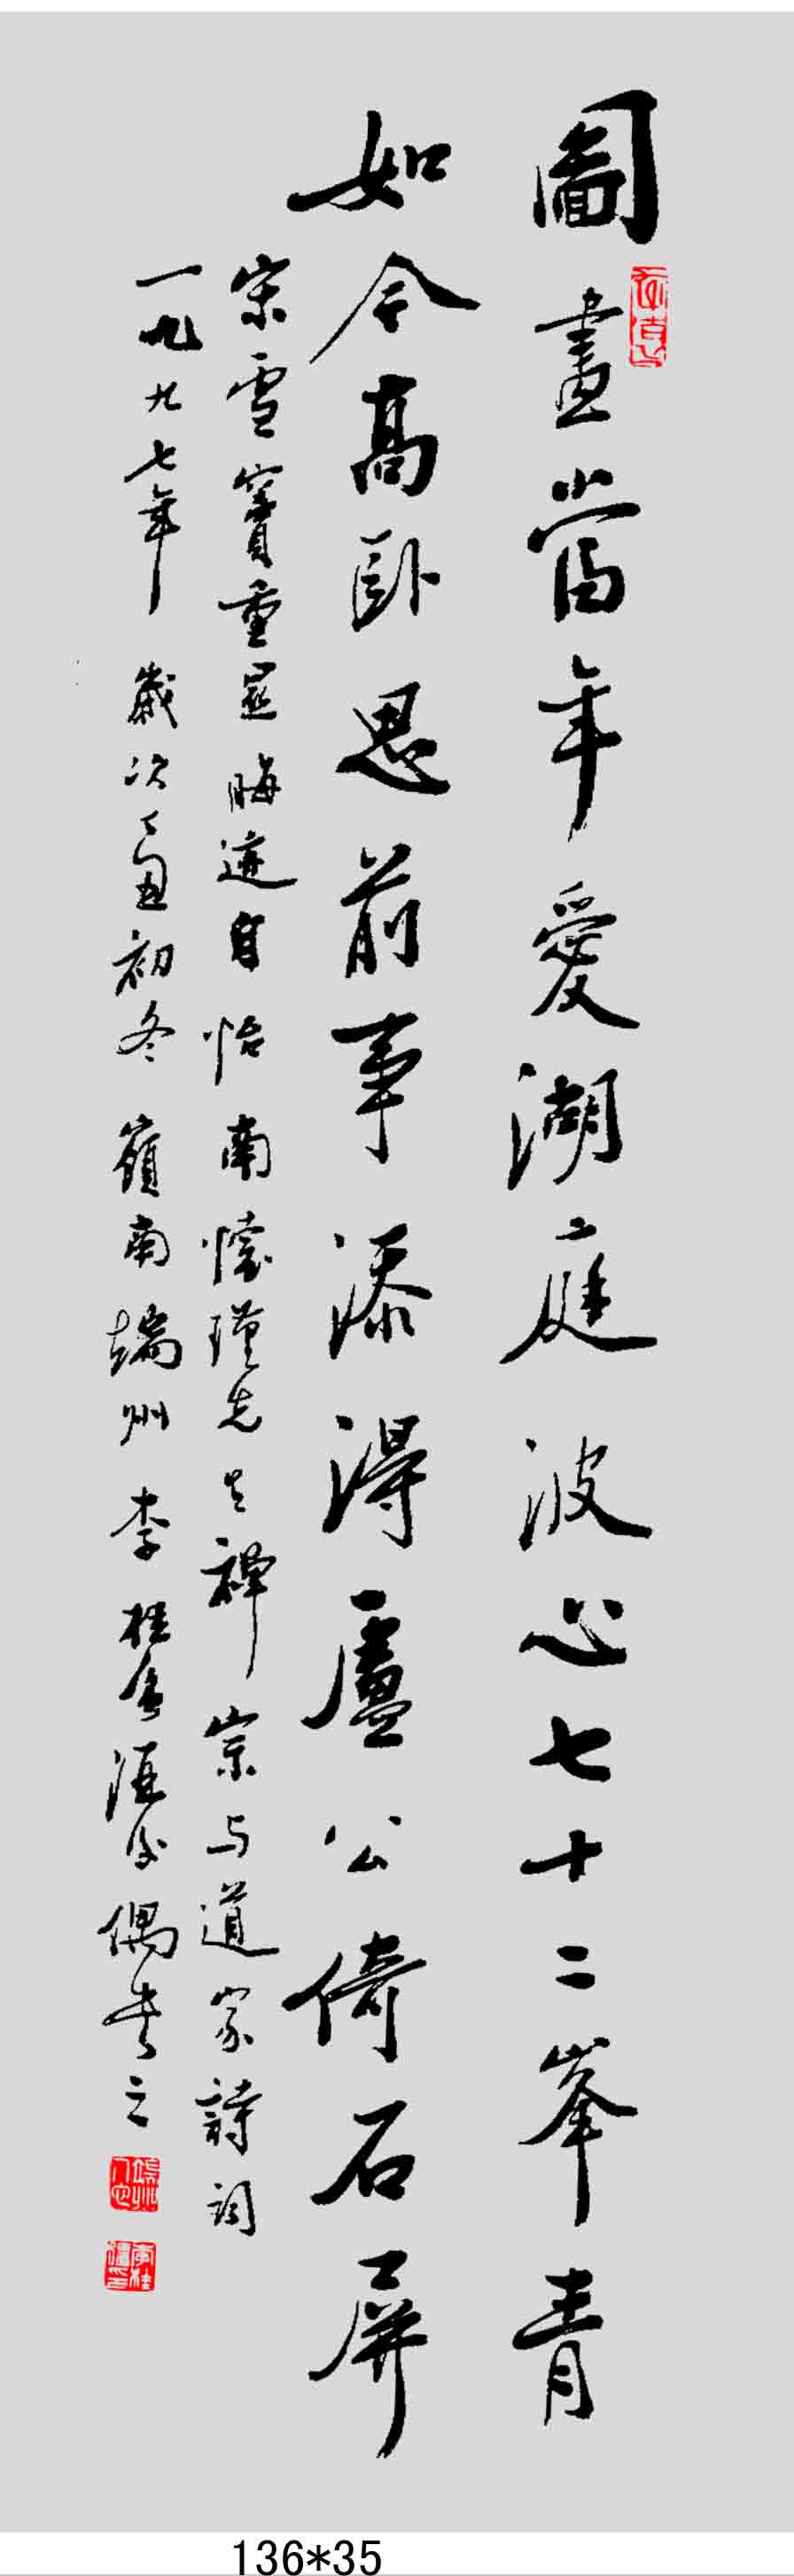 圖畫當年愛湖庭波心七十二峯青
如今高臥思前事添得盧公倚石屏
宋雪竇重显晦迹自怡南懷瑾先生禅宗与道家詩词
一九九七年歲次丁丑初冬嶺南端州李桂酒後偶书之
136*35